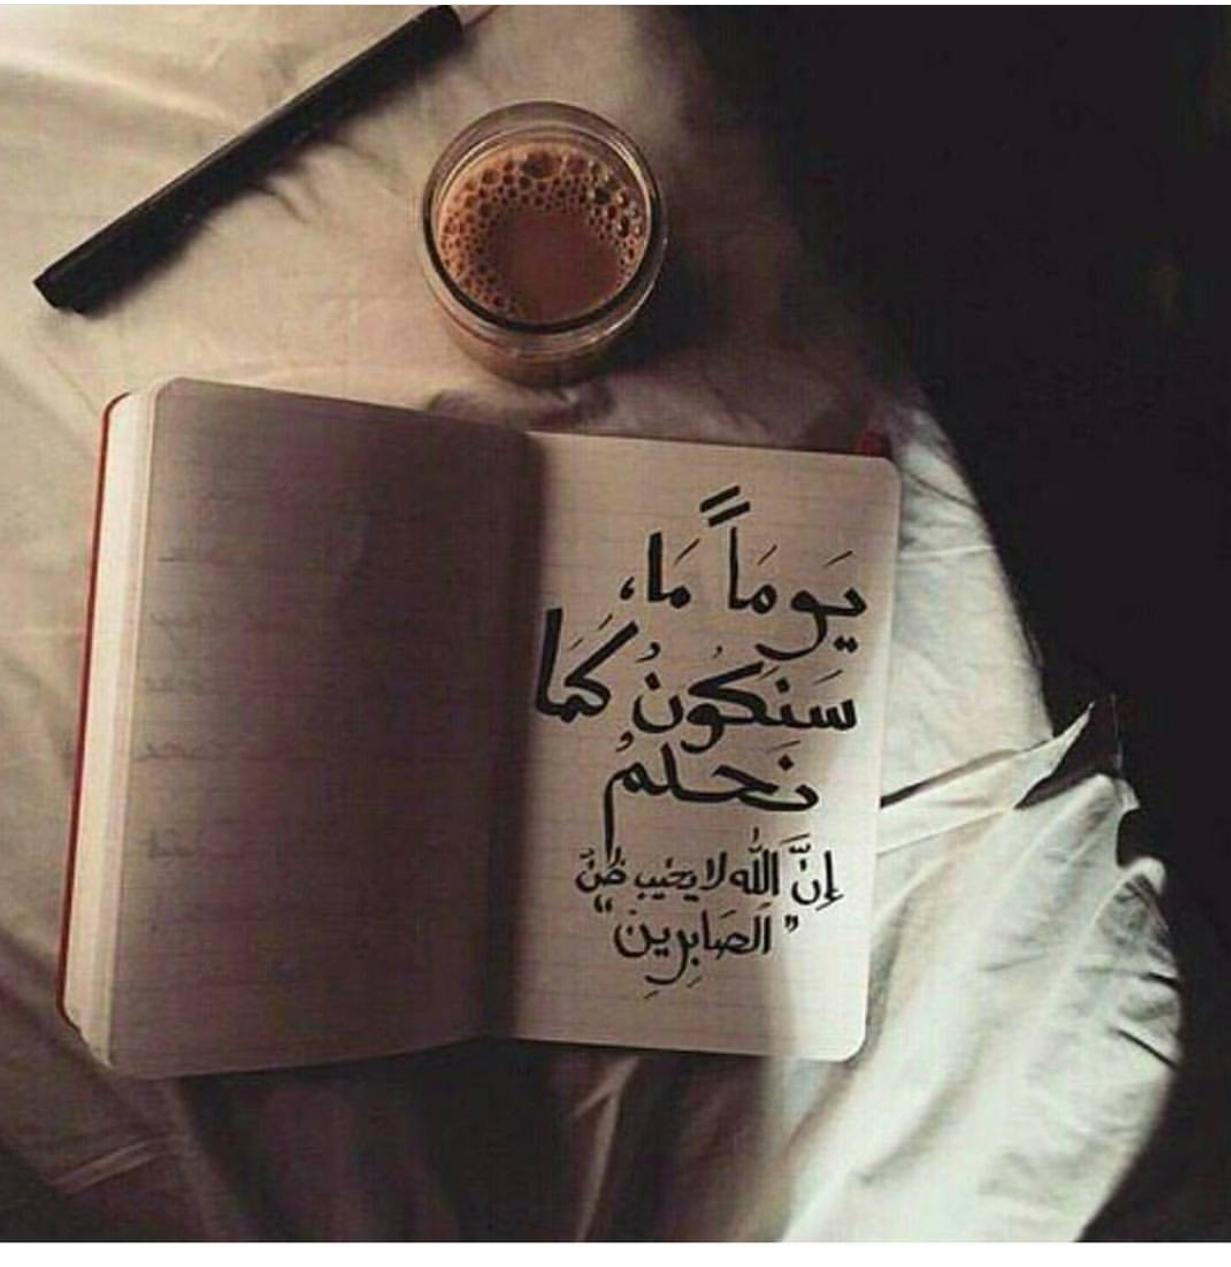 يَوماً مَا،
سَنَكُونُ كَمَا
نَحلمُ
إِنَّ اللّٰه لا يخيب ظنّ
"الصَابِرِين"